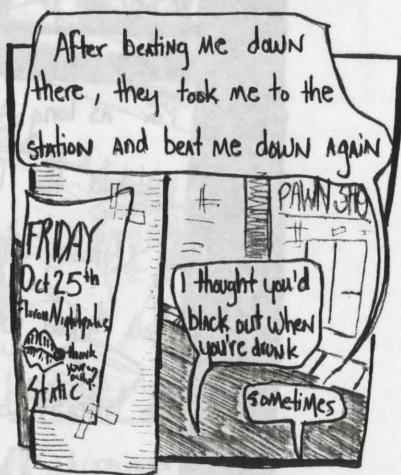 After beating me down
there, they took me to the
station and beat me down again
FRIDAY
Oct 25th
thank
Static
PAWN SHO
I thought you'd
black out when
you're drunk
sometimes